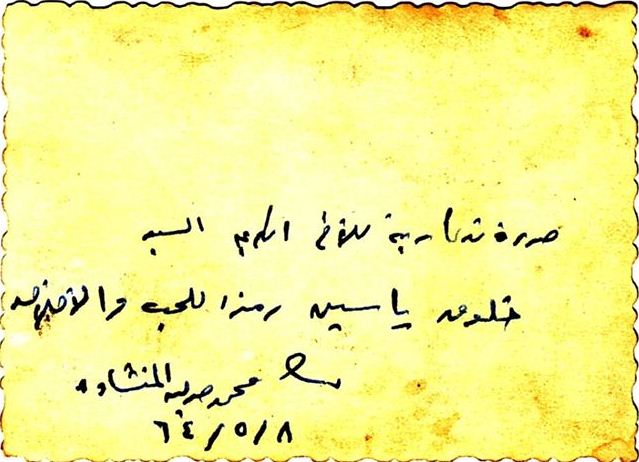 صورة تذكارية للأخ الكريم السيد
خلوصي ياسين رمزا للحب والاخلاص
محمد صديق المنشاوى
٦٤/٥/٨